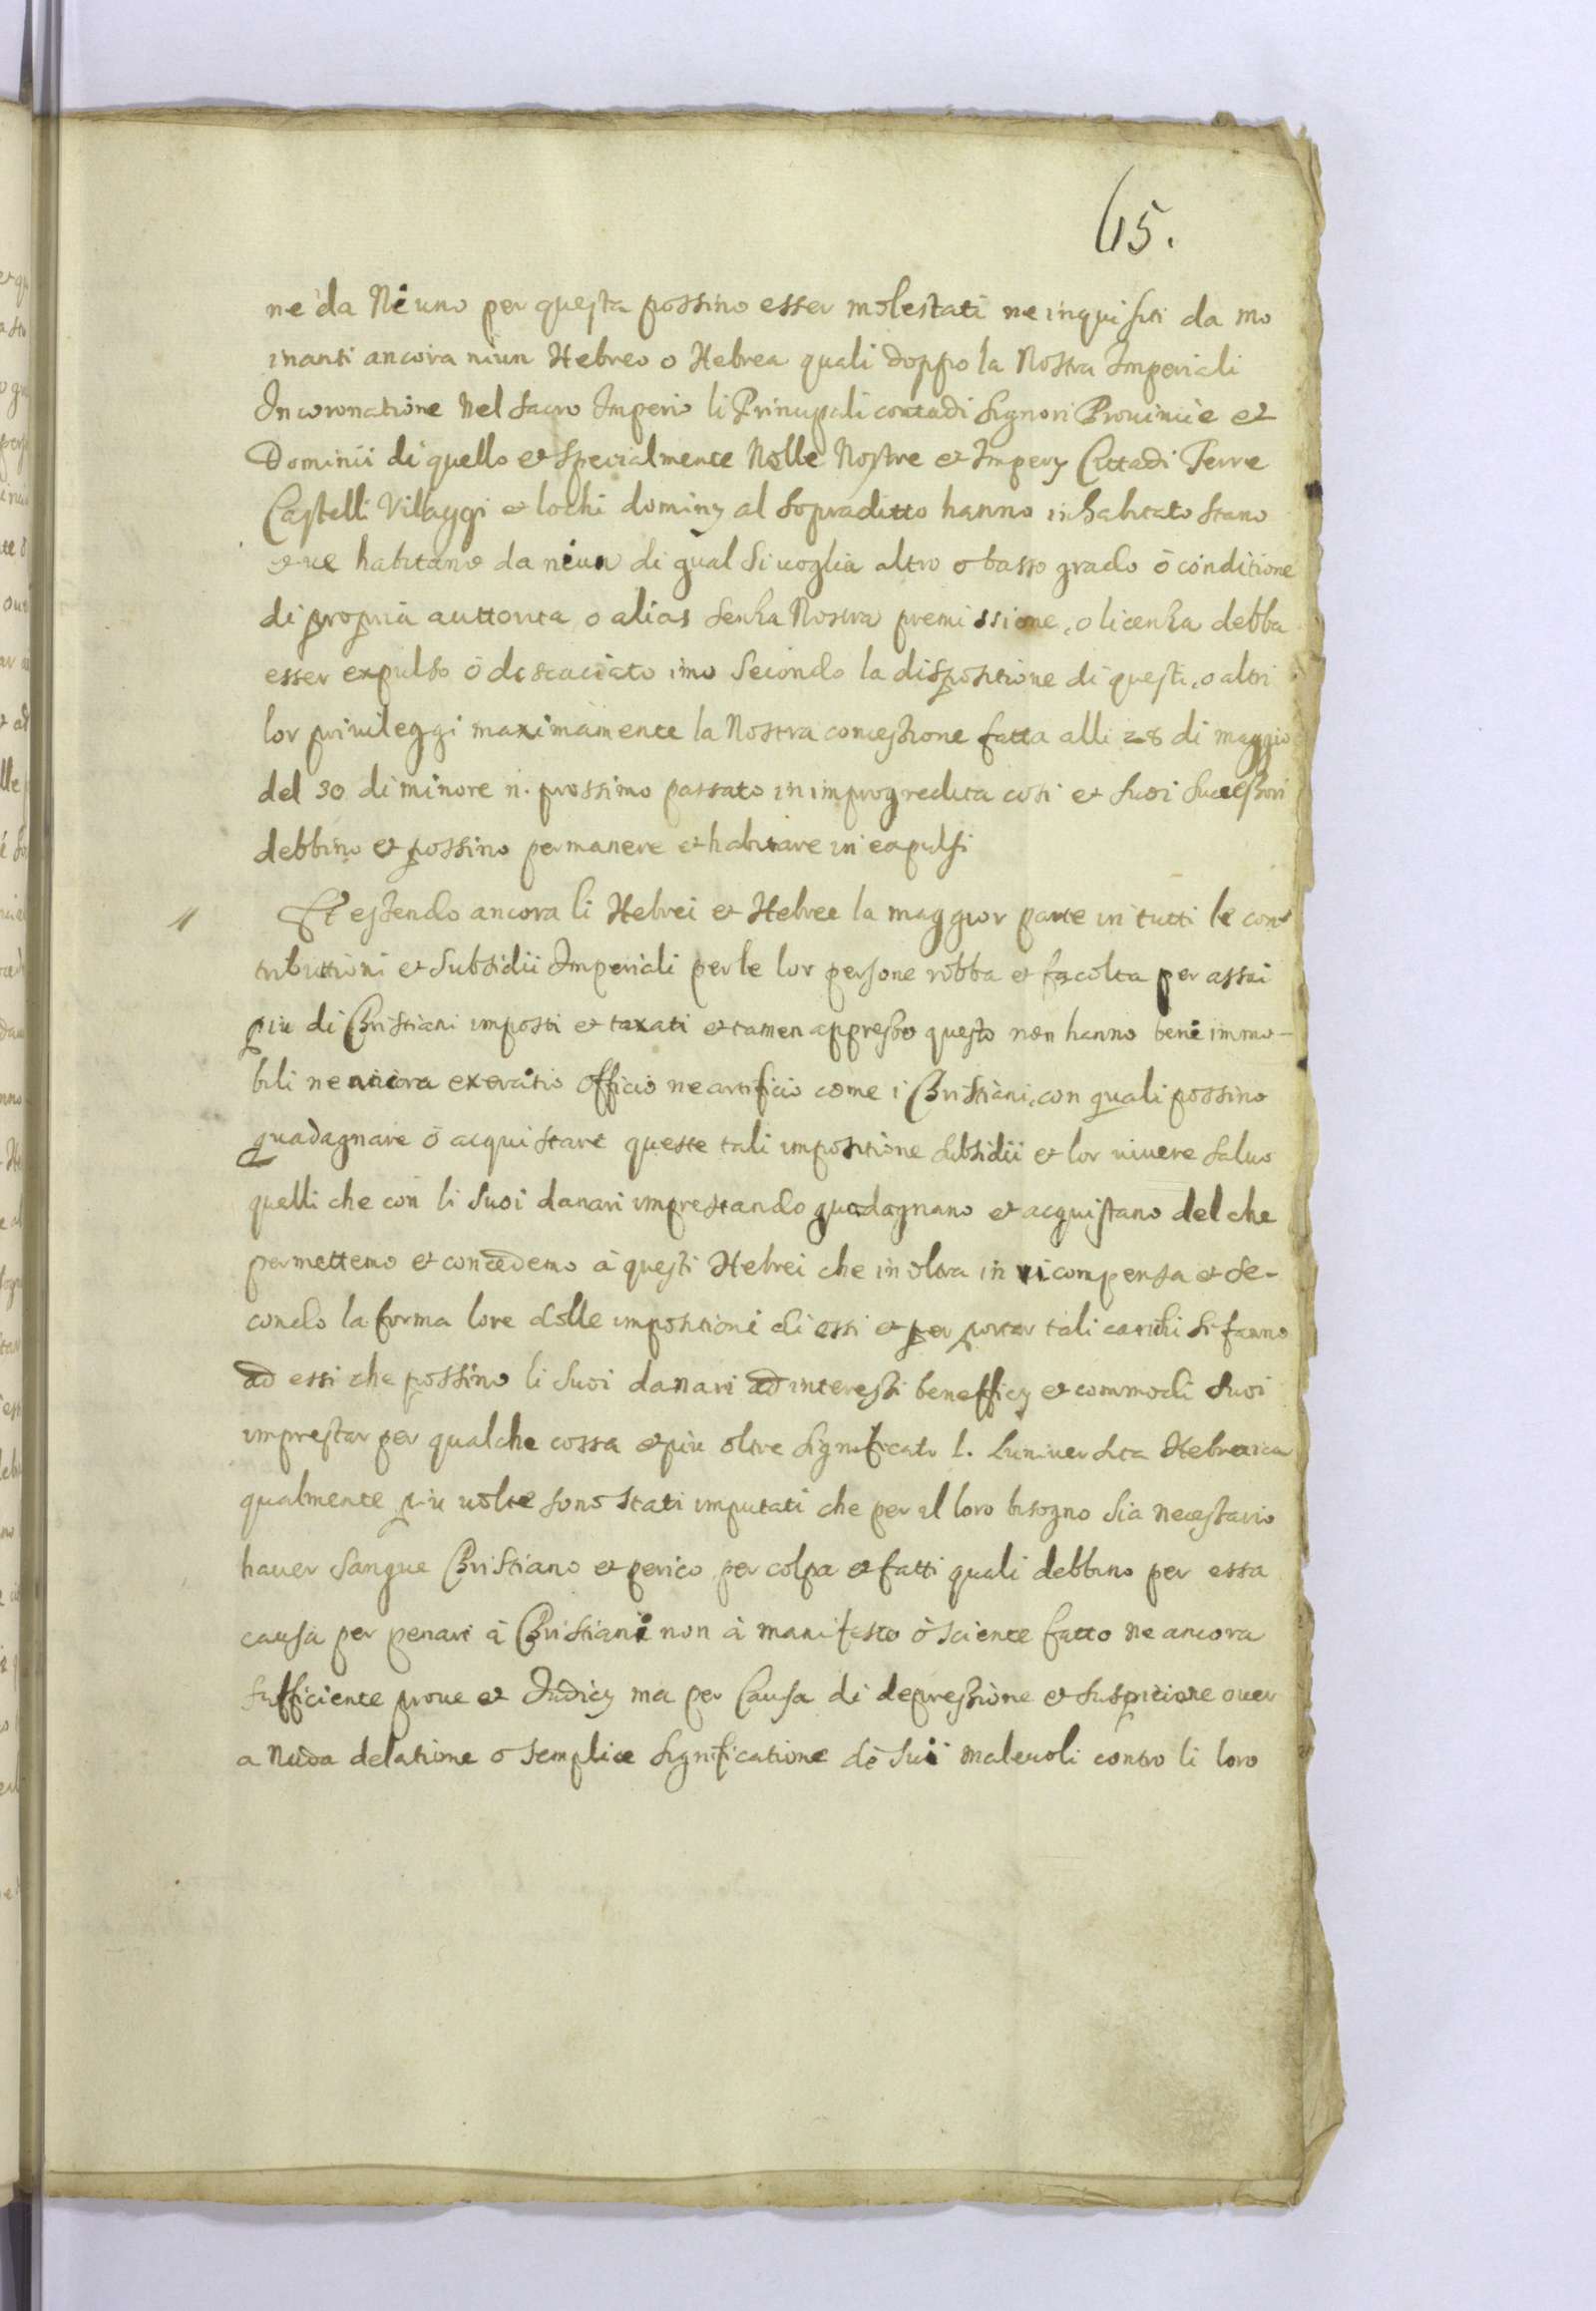 65.
ne da Niuno per questa possino esser molestati ne inquisiti da mo
inanti ancora niun Hebreo o Hebrea quali doppo la Nostra Imperiali
Incoronatione Nel sacro Imperio li Principali contadi Signori Provincie et
Dominii di quello et specialmente Nelle Nostre et Impery Cittadi Terre
Castelli Vilaggi et lochi dominy al sopraditto hanno inhabitato stano
habitano da niun di qual si voglia altro o basso grado ò conditione
di propria auttorita o alias senza Nostra premissione, o licenza debba
esser expulso ò descaciato imo secondo la dispositione di questi, o altri
lor privileggi maximamente la Nostra concessione fatta alli 28 di maggio
del 30 di minore n. prossimo passato in improgredita cosi et suoi sucessori
debbino et possino permanere et habitare in eapulsi
1 Et essendo ancora li Hebrei et Hebree la maggior parte in tutti le con
tributtioni et subsidii Imperiali per le lor persone robba et facolta per assai
piu di Christiani imposti et taxati et tamen appresso questo non hanno beni immo-
bili ne ancora exercitio officio ne artificio come i Christiani, con quali possino
guadagnare ò acquistare queste tali impositione subsidii et lor vivere salvo
quelli che con li suoi danari imprestando guadagnano et acquistano del che
permettemo et concedemo à questi Hebrei che in oltra in ricompensa et se-
condo la forma lore delle impositioni di essi et per portar tali carichi si fanno
ad essi che possino li suoi danari ad interessi benefficy et commodi suoi
imprestar per qualche cossa et piu oltre significato l. luniversita Hebraica
qualmente piu volte sono stati imputati che per il loro bisogno sia necessario
haver sangue Christiano et perico per colpa et fatti quali debbino per essa
causa per penari à Christiani non à manifesto ò sciente fatto ne ancora
sufficiente prove et Indicy ma per Causa di depressione et suspitione over
a Nuda delatione o semplice significatione de suii malevoli contro li loro